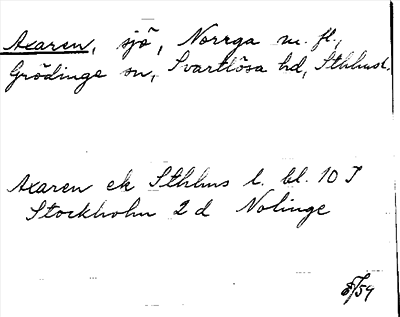 Axaren, sjö, Norrga m. fl.,
Grödinge sn, Svartlösa hd, Sthlms l.
Axaren ek Sthlms l. bl. 10 J
Stockholm 2 d Nolinge
/54